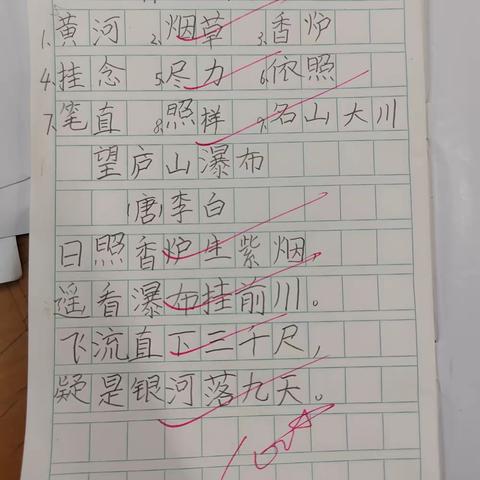 1、黄河 2、烟草 3、香炉
4、挂念 5、尽力 6、依照
7、笔直 8、照样 9、名山大川
望庐山瀑布
(唐)李白
日照香炉生紫烟,
遥看瀑布挂前川。
飞流直下三千尺,
疑是银河落九天。
100